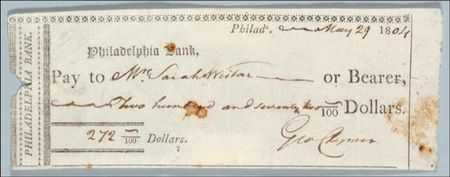 PHILADELPHIA BANK.
Philadª. May 29 1804
Philadelphia Bank,
Pay to Mrs Sarah Wistar or Bearer,
Two hundred and seventy two /100 Dollars.
272 /100 Dollars.
Geo Clymer